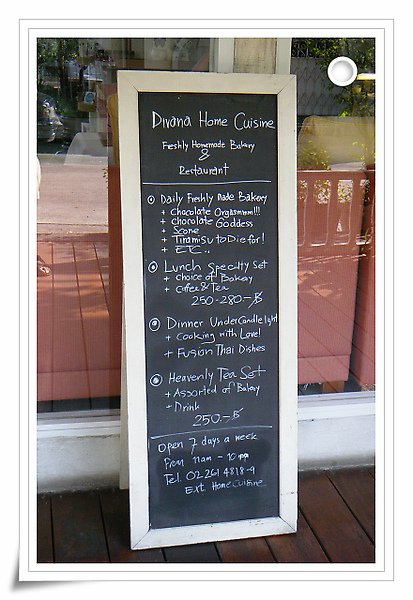 Divana Home Cuisine
Freshly Homemade Bakery
&
Restaurant
Daily Freshly Made Bakery
+ Chocolate Orgasmmm!!!
+ Chocolate Goddess
+ Scone
+ Tiramisu to Die for!
+ ETC..
Lunch Specity Set
+ Choice of Bakery
+ Coffee & Tea
250-280.-B
Dinner Under Candle light
+ Cooking with Love!
+ Fusion Thai Dishes
Heavenly Tea Set
+ Assorted of Bakery
- Drink
250.-B
Open 7 days a week
From 11am - 10pm
Tel. 02 261 4818-9
Ext. Home Cuisine